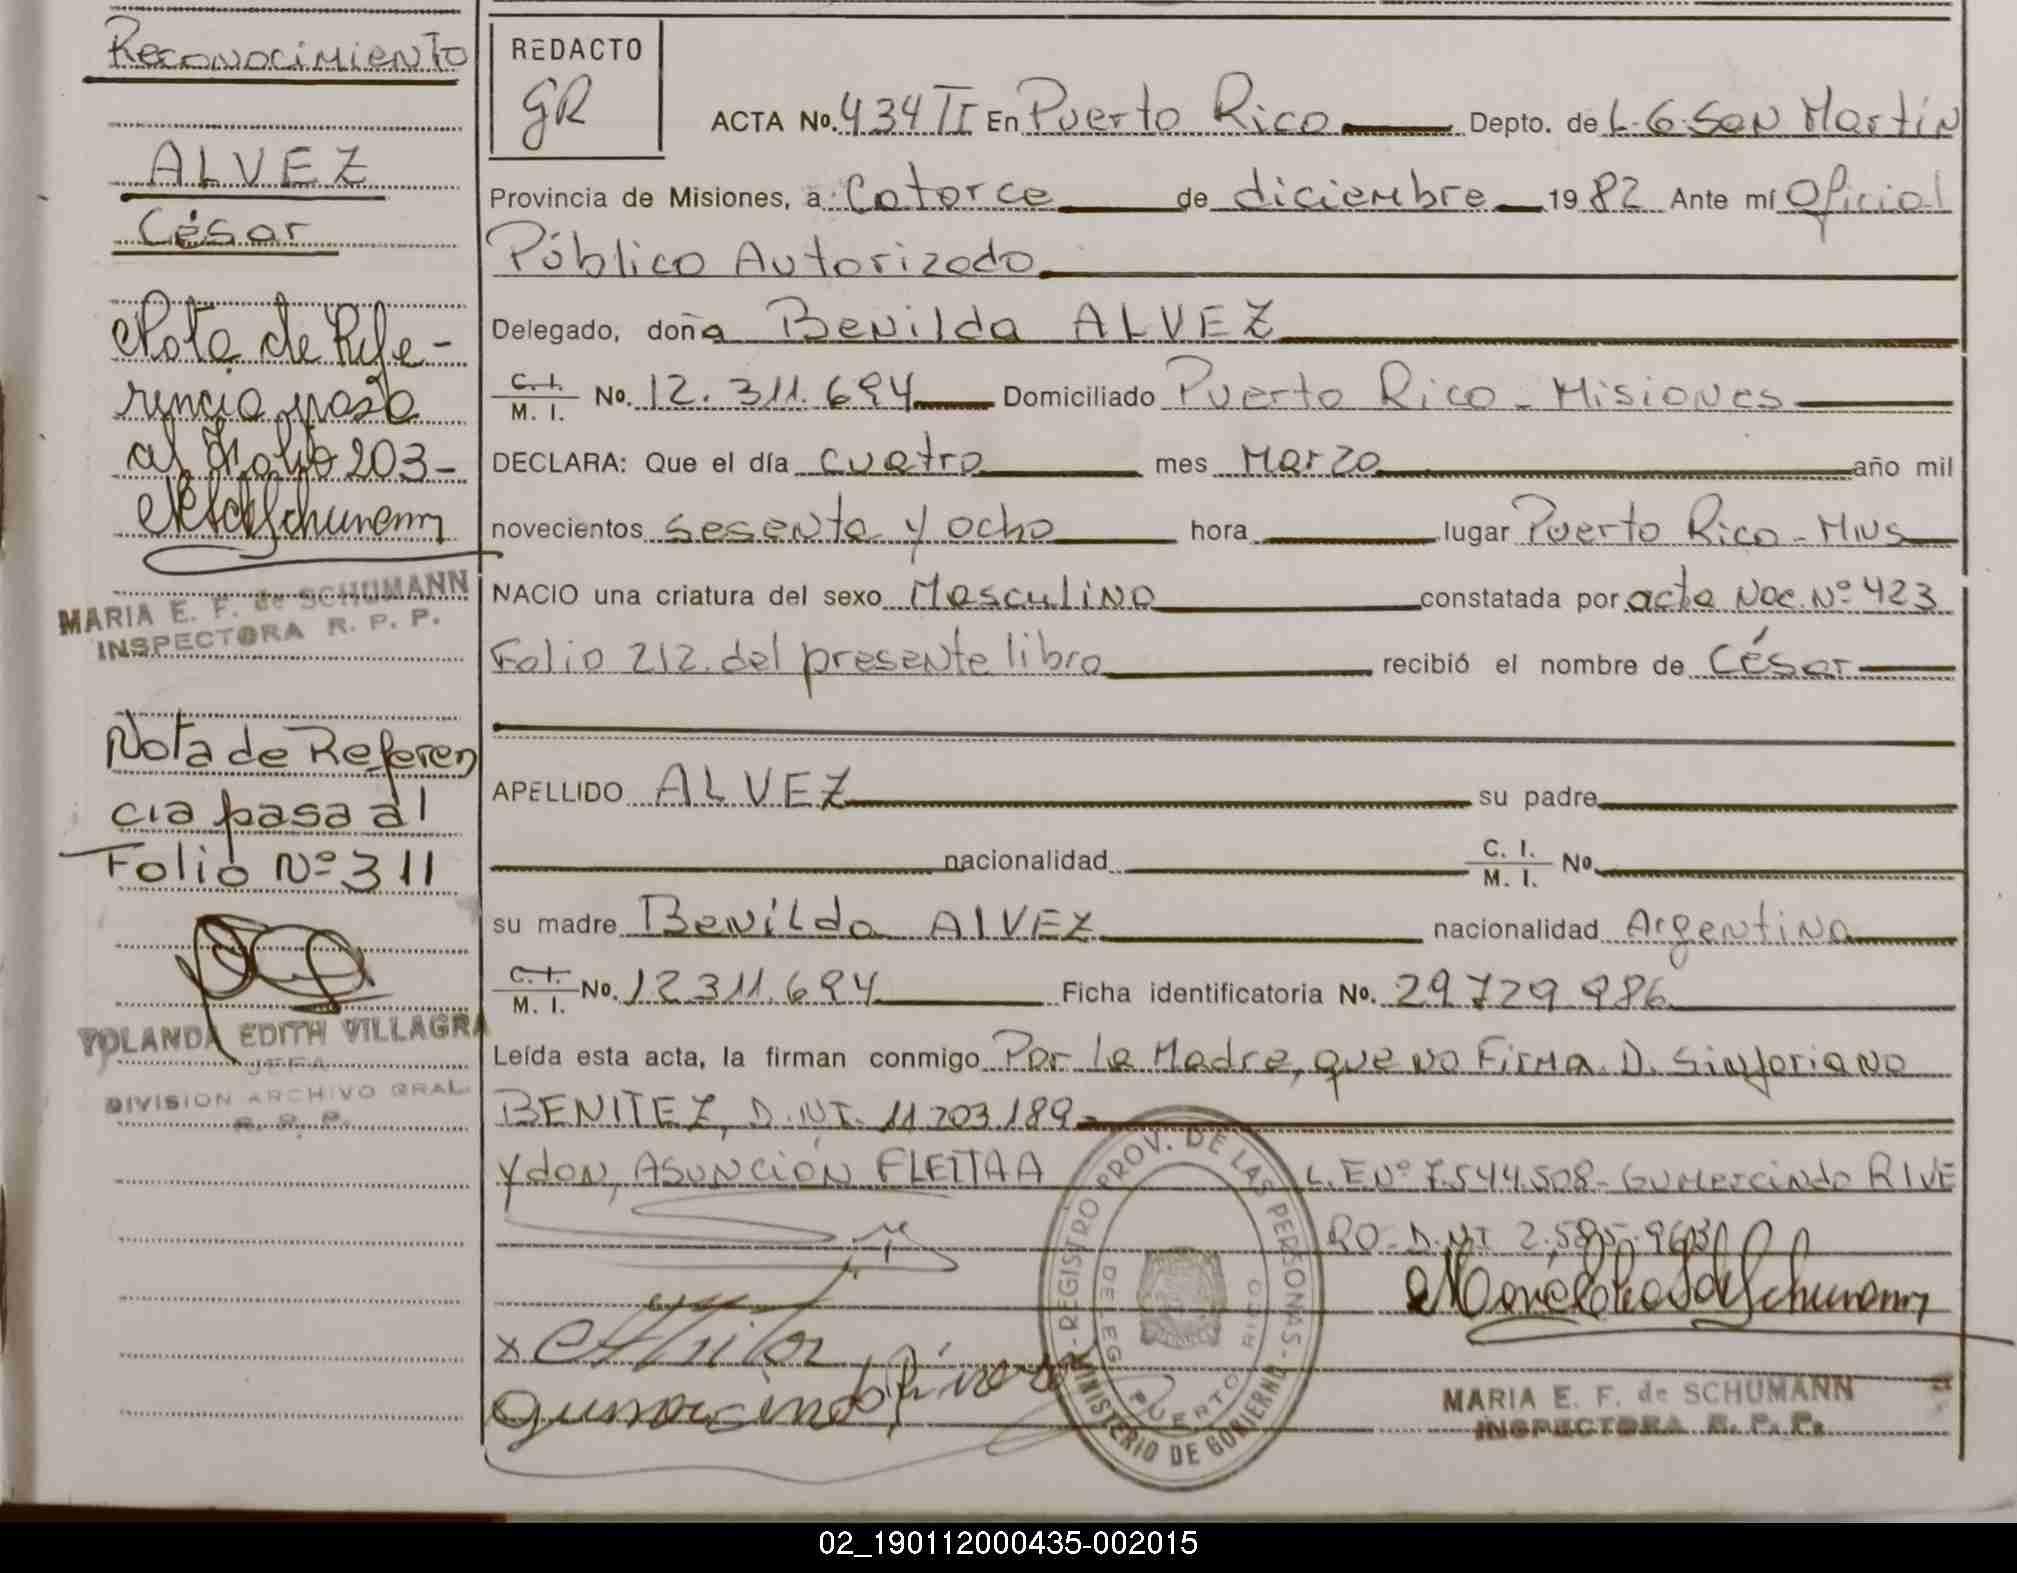 Reconocimiento
ALVEZ
César
Nota de Refe-
rencia pasa
al Folio 203-
MARIA E. F. de SCHUMANN
INSPECTORA R. P. P.
Nota de Referen
cia pasa al
Folio Nº 311
YOLANDA EDITH VILLAGRA
JEFA
DIVISION ARCHIVO GRAL.
R. P. P.
REDACTO
GR
ACTA No. 434 TI En Puerto Rico Depto. de L. G. San Martín
Provincia de Misiones, a Catorce de diciembre 1982 Ante mí Oficial
Público Autorizado
Delegado, doña Benilda ALVEZ
C. I. / M. I. No. 12.311.694 Domiciliado Puerto Rico - Misiones
DECLARA: Que el día cuatro mes Marzo año mil
novecientos sesenta y ocho hora lugar Puerto Rico - Mnes
NACIO una criatura del sexo Masculino constatada por acta Nac. Nº 423
Folio 212. del presente libro recibió el nombre de César
APELLIDO ALVEZ su padre
nacionalidad C. I. / M. I. No.
su madre Benilda ALVEZ nacionalidad Argentina
C. I. / M. I. No. 12.311.694 Ficha identificatoria No. 29.729.986
Leída esta acta, la firman conmigo Por la Madre, que no Firma. D. Sinforiano
BENITEZ, D.N.I. 11.203.189-
y don, ASUNCION FLEITAA L.E Nº 7.544.508- Gumercindo RIVE
RO- D.NI 2.585.963
Gumercindo Rivero
REGISTRO PROV. DE LAS PERSONAS - MINISTERIO DE GOBIERNO
DELEG. PUERTO RICO
MARIA E. F. de SCHUMANN
INSPECTORA R. P. P.
02_190112000435-002015